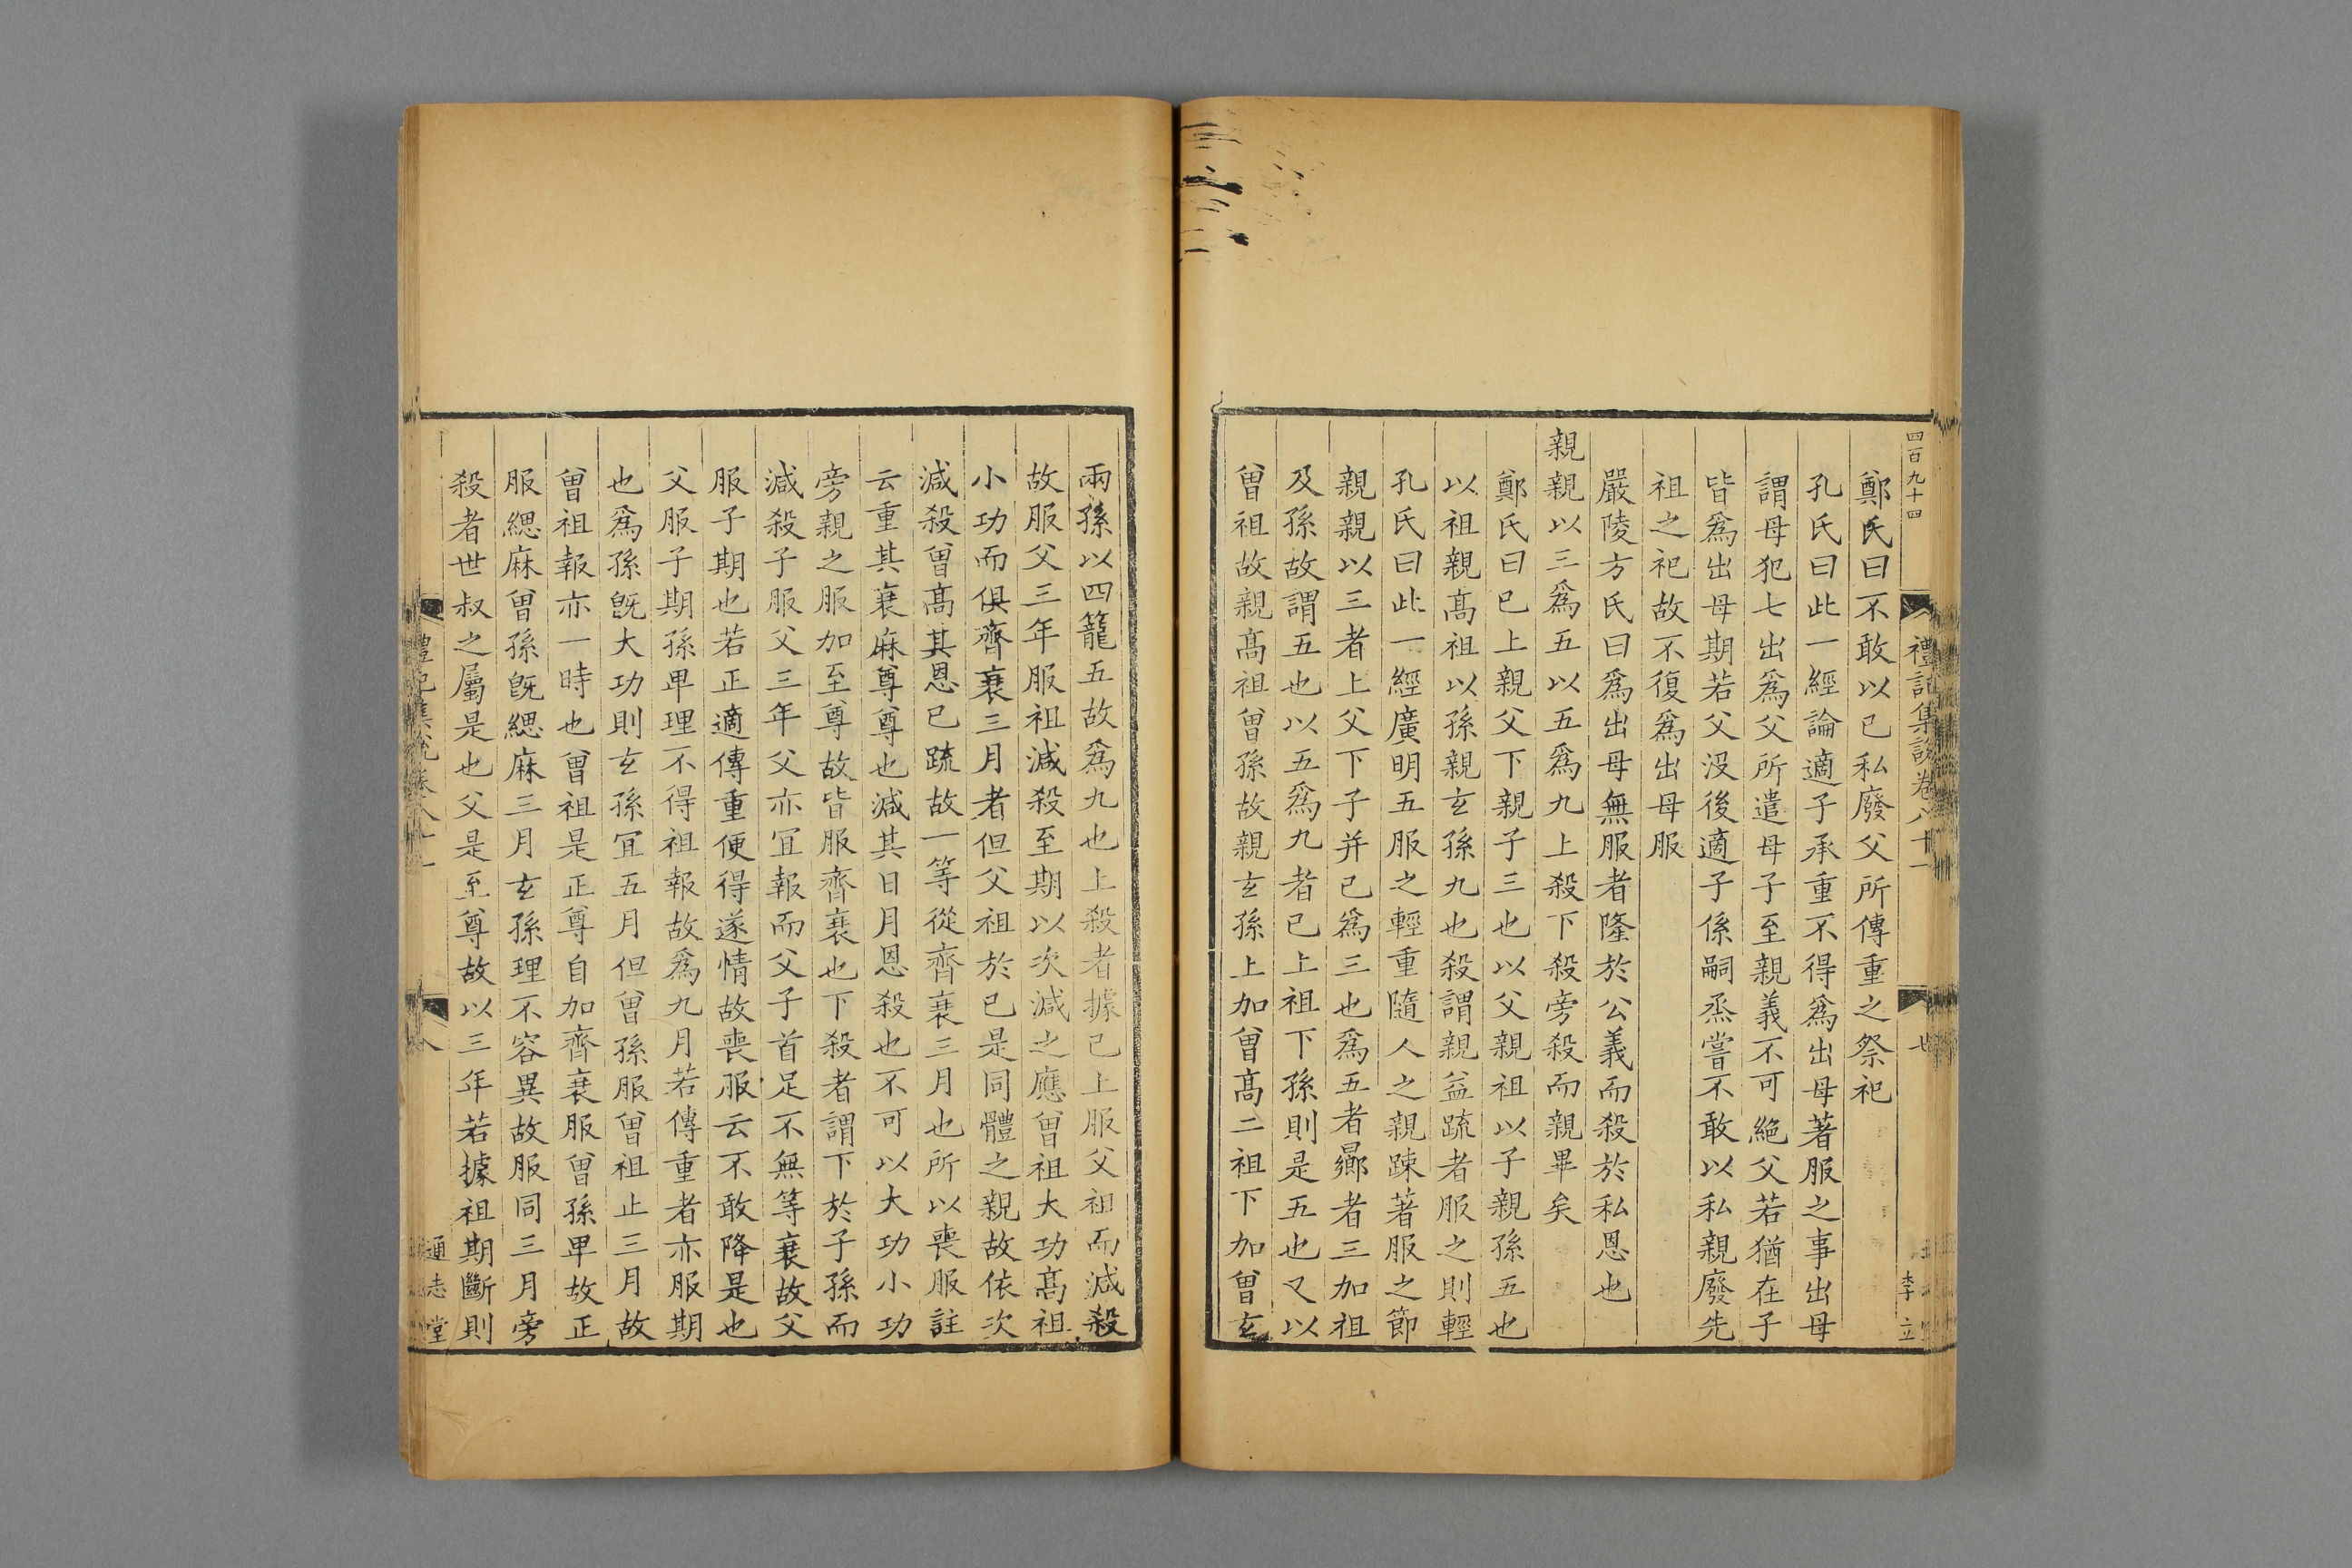 四百九十四
禮記集說卷八十一
七
李立
鄭氏曰不敢以已私廢父所傳重之祭祀
孔氏曰此一經論適子承重不得爲出母著服之事出母
謂母犯七出爲父所遣母子至親義不可絶父若猶在子
皆爲出母期若父没後適子係嗣烝嘗不敢以私親廢先
祖之祀故不復爲出母服
嚴陵方氏曰爲出母無服者隆於公義而殺於私恩也
親親以三爲五以五爲九上殺下殺旁殺而親畢矣
鄭氏曰已上親父下親子三也以父親祖以子親孫五也
以祖親髙祖以孫親玄孫九也殺謂親益疏者服之則輕
孔氏曰此一經廣明五服之輕重隨人之親踈著服之節
親親以三者上父下子并已爲三也爲五者曏者三加祖
及孫故謂五也以五爲九者已上祖下孫則是五也又以
曾祖故親髙祖曾孫故親玄孫上加曾髙二祖下加曾玄
兩孫以四籠五故爲九也上殺者據已上服父祖而減殺
故服父三年服祖減殺至期以次減之應曾祖大功髙祖
小功而俱齊衰三月者但父祖於已是同體之親故依次
減殺曾髙其恩已疏故一等從齊衰三月也所以喪服註
云重其衰麻尊尊也減其日月恩殺也不可以大功小功
旁親之服加至尊故皆服齊衰也下殺者謂下於子孫而
減殺子服父三年父亦宜報而父子首足不無等衰故父
服子期也若正適傳重便得遂情故喪服云不敢降是也
父服子期孫卑理不得祖報故爲九月若傳重者亦服期
也爲孫旣大功則玄孫宜五月但曾孫服曾祖止三月故
曾祖報亦一時也曾祖是正尊自加齊衰服曾孫卑故正
服緦麻曾孫旣緦麻三月玄孫理不容異故服同三月旁
殺者世叔之屬是也父是至尊故以三年若據祖期斷則
禮記集說卷八十一
八
通志堂